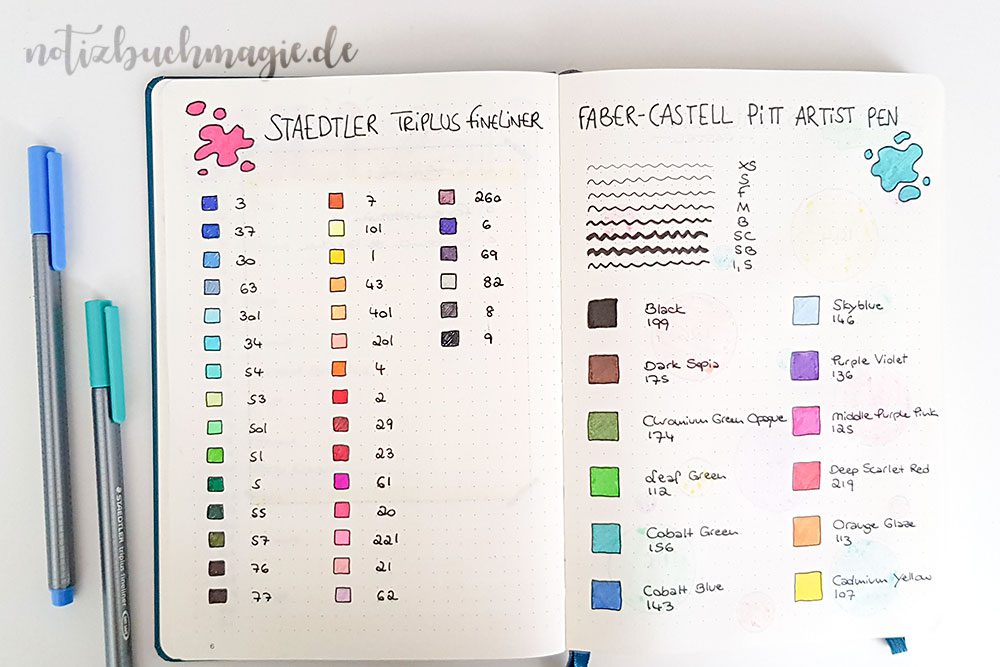 notizbuchmagie.de
STAEDTLER TRIPLUS fineliner
3
37
30
63
301
34
54
53
501
51
5
55
57
76
77
7
101
1
43
401
201
4
2
29
23
61
20
221
21
62
260
6
69
82
8
9
6
FABER-CASTELL PITT ARTIST PEN
XS
S
F
M
B
SC
SB
1,5
Black
199
Dark Sepia
175
Chromium Green Opaque
174
Leaf Green
112
Cobalt Green
156
Cobalt Blue
143
Skyblue
146
Purple Violet
136
Middle Purple Pink
125
Deep Scarlet Red
219
Orange Glaze
113
Cadmium Yellow
107
STAEDTLER triplus fineliner